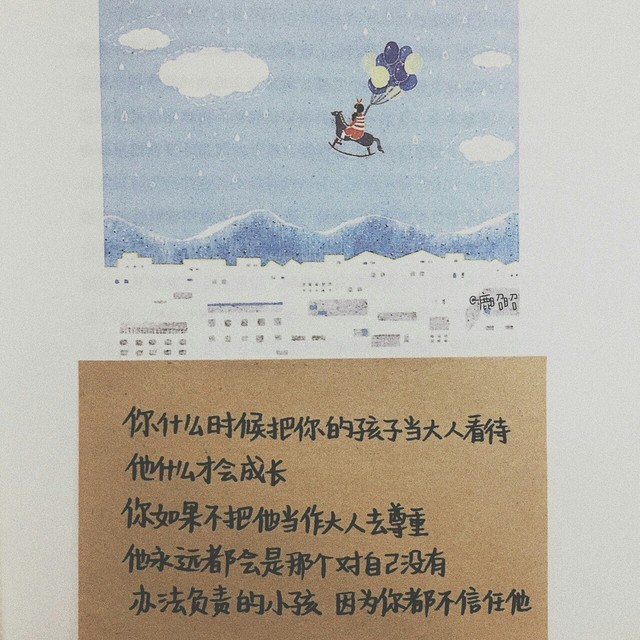 ©鹿郃郃
你什么时候把你的孩子当大人看待
他什么才会成长
你如果不把他当作大人去尊重
他永远都会是那个对自己没有
办法负责的小孩 因为你都不信任他